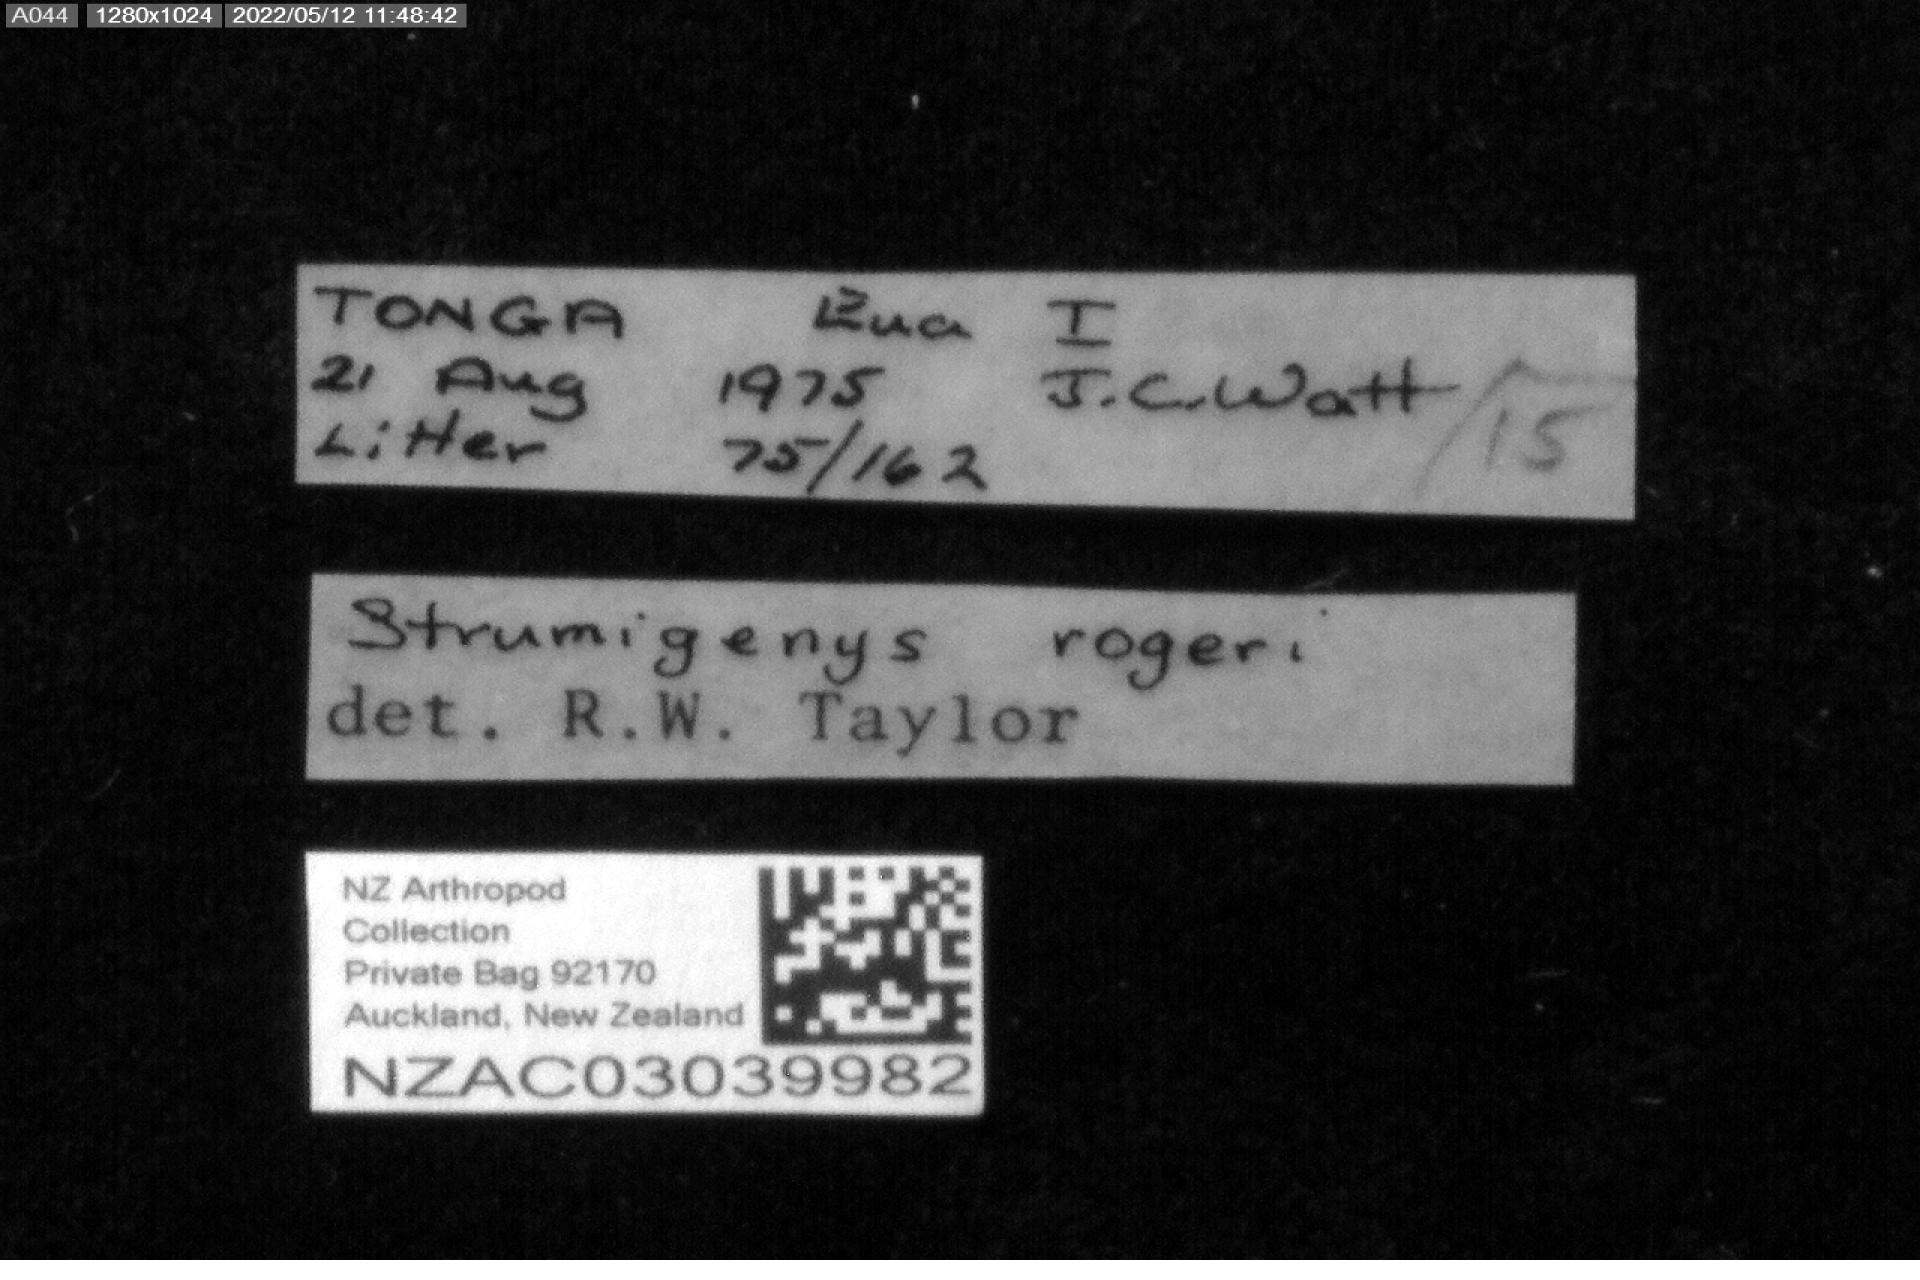 A044 1280x1024 2022/05/12 11:48:42
TONGA Eua I
21 Aug 1975 J.C.Watt
Litter 75/162 15
Strumigenys rogeri
det. R.W. Taylor
NZ Arthropod
Collection
Private Bag 92170
Auckland, New Zealand
NZAC03039982